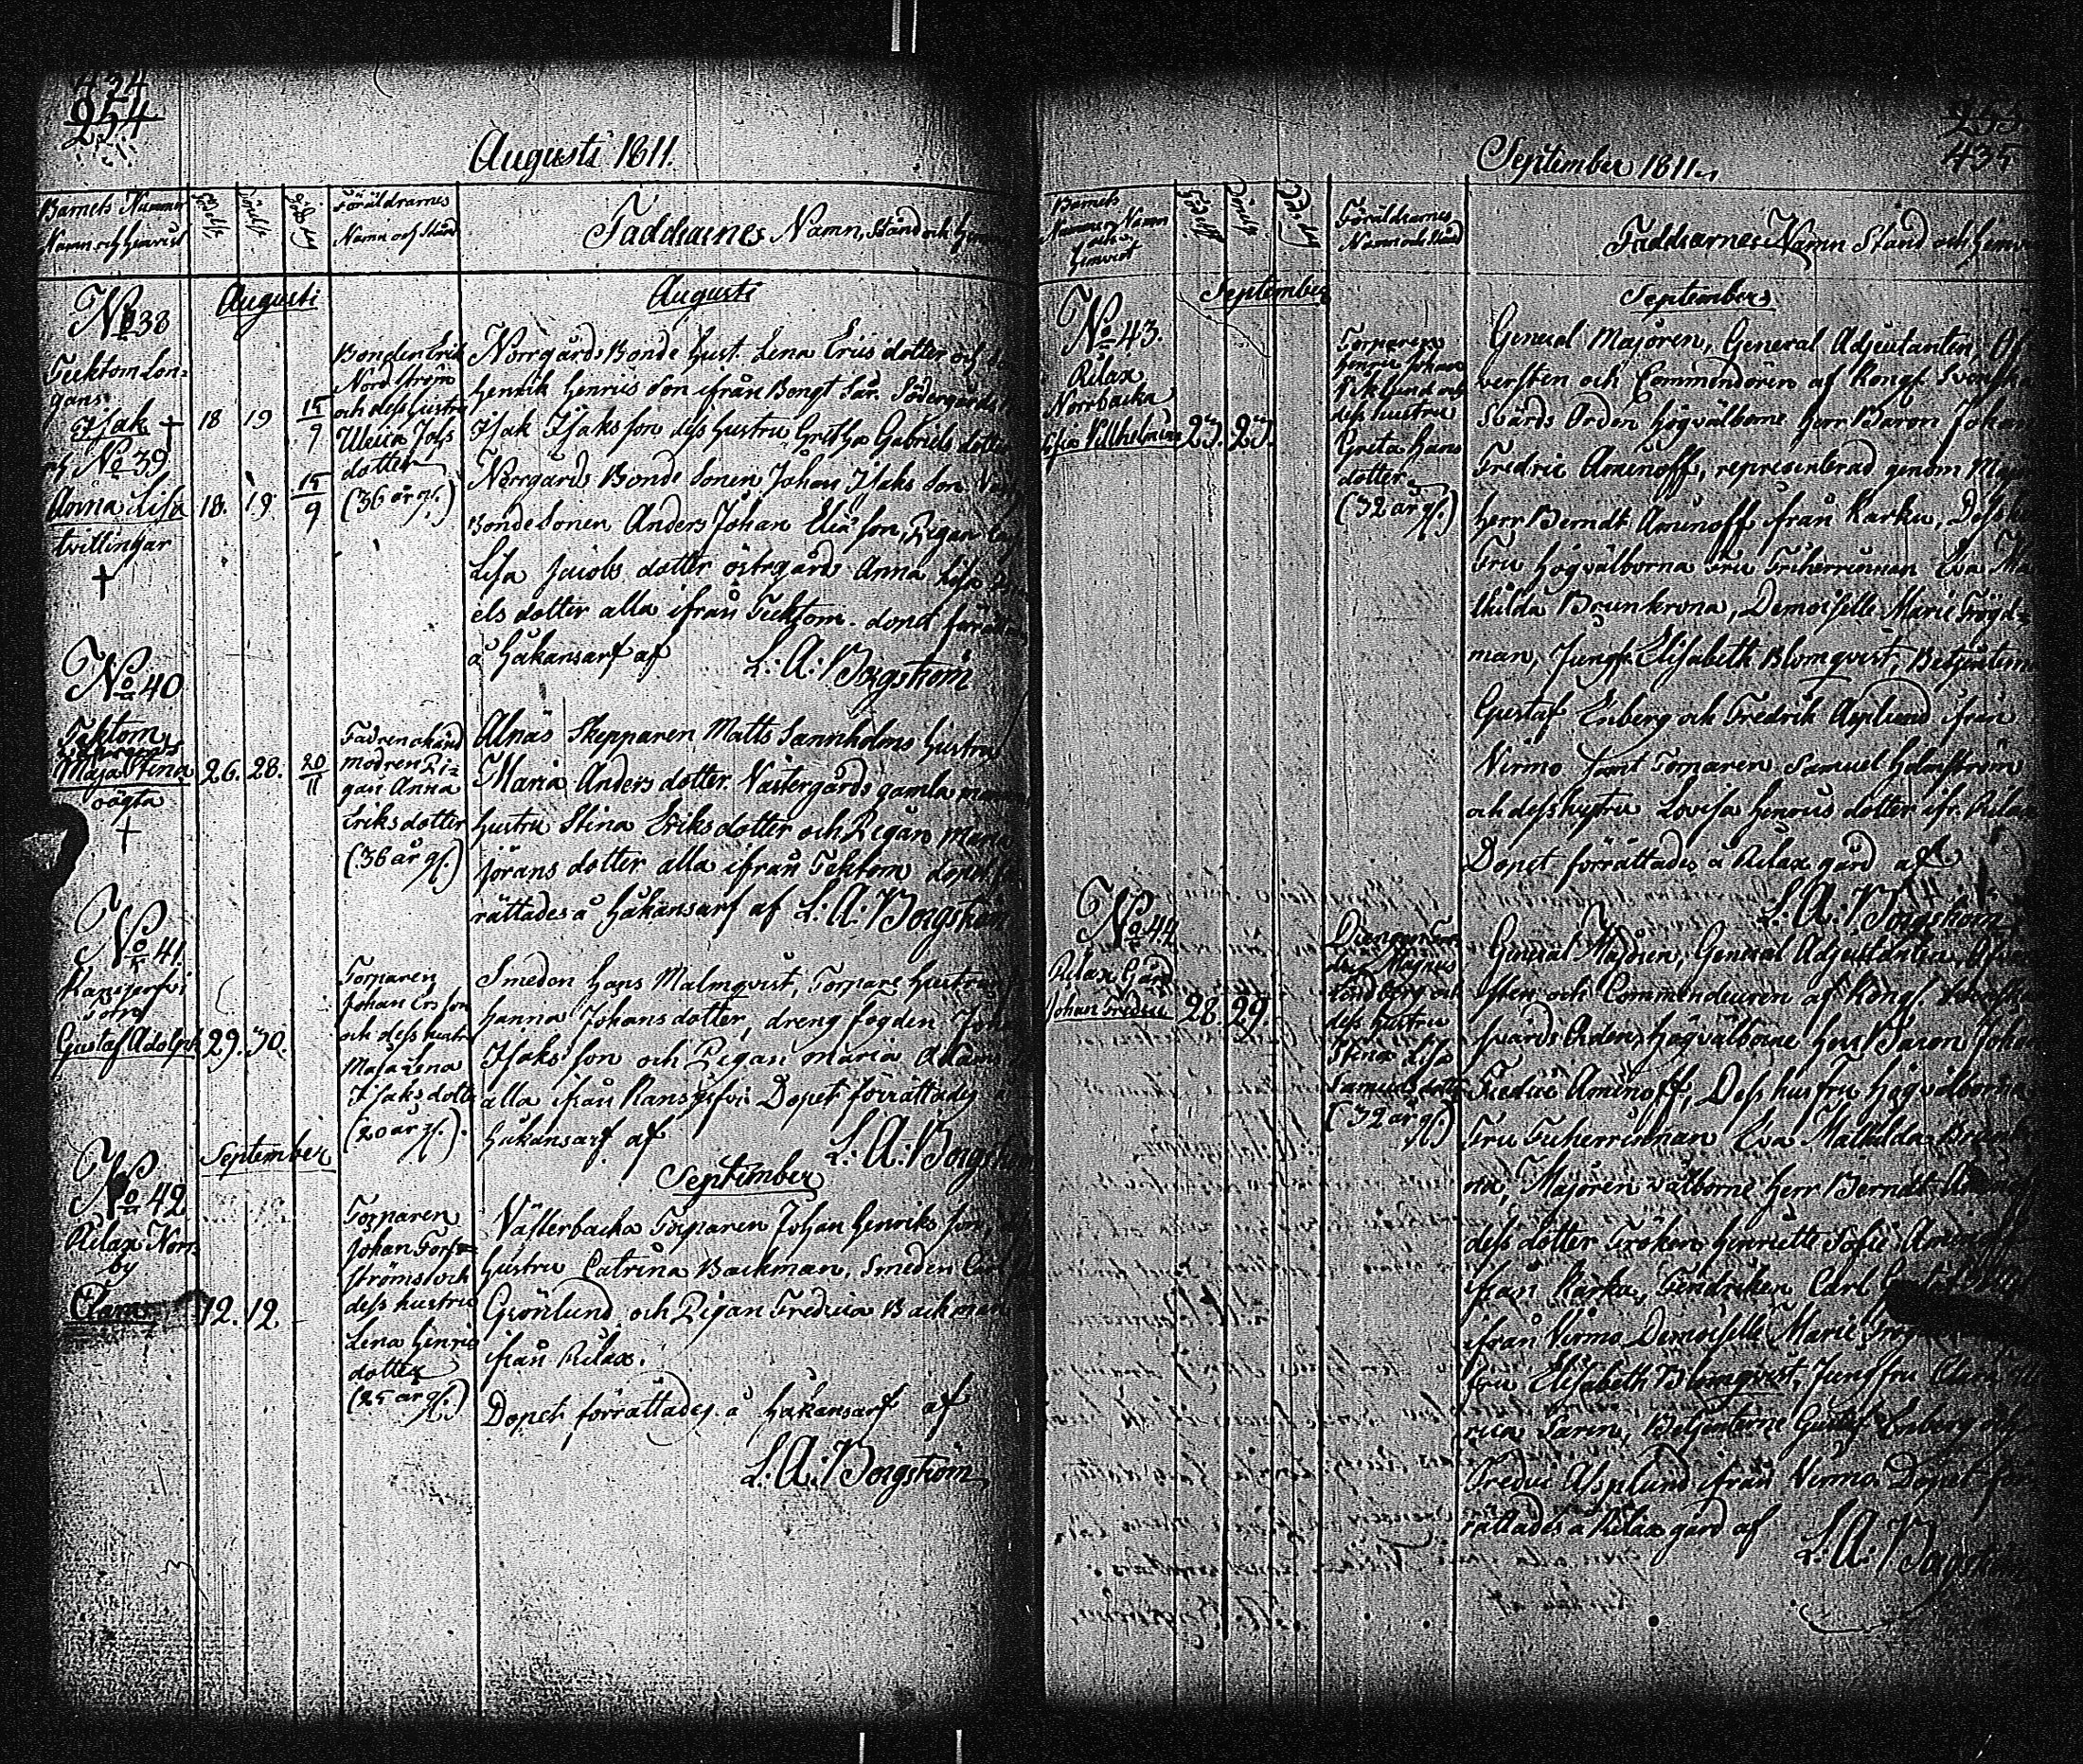 434
254
Augusti 1811.
Barnets Nummer
Namn och hemvist
Född
Döpt
Föräldrarnes
Namn och Stånd
Faddrarnes Namn, Stånd och
Augusti
Augusti
No 38
Isak †
18 19 15/9
och No 39
Anna Lisa
18. 19 15/9
tvillingar
†
Bonden Erik
Nordström
och dess hustru
Ulrica
dotter
(36 år gl.)
Norrgårds Bonde hust. Lena Erics dotter och
Henrik Henrics Son ifrån Bengt Sår. Södergårds
Isak Isaks son dess hustru Gretha Gabriels dotter
Norrgårds Bonde Sonen Johan Isaks Son
Bonde Sonen Anders Johan Eliæ son, Pigan
Lisa Jacobs dotter östergård Anna Lisa
els dotter alla ifrån Tecktom. dopet förrätt
å Håkansarf af L: A: Borgström
No 40
Tektom
Maja Stina
26. 28. 20/11
oägta
†
Fadren okänd
modren Pi-
gan Anna
Eriks dotter
(36 år gl.)
Alnäs Skepparen Matts Sannholms hustru
Maria Anders dotter. Västergårds gamla
hustru Stina Eriks dotter och Pigan Maria
Jörans dotter alla ifrån Tektom dopet
rättades å Håkansarf af L: A: Borgström
No 41.
Gustaf Adolph
29. 30.
Torparen
Johan Ers son
och dess hustru
Maja Lena
Isaks dotter
(20 år gl.)
Smeden Hans Malmqvist, Torpare hustrun
Hanna Johans dotter, dreng fogden
Isaks son och Pigan Maria
alla ifrån Dopet förrättades å
Håkansarf af L: A: Borgström
September
September
No 42
Rilax Norr-
by
12. 12.
Torparen
Johan
ströms och
dess hustru
Lena Henrics
dotter
(25 år gl.)
Västerbacka Torparen Johan Henriks son,
hustru Catrina Backman, Smeden
Grönlund och Pigan Fredrica Backman
ifrån Rilax.
Dopet förrättades å Håkansarf af
L: A: Borgström
255
435
September 1811.
Barnets
Nummer Namn
och
hemvist
Född
Döpt
Föräldrarnes
Namn och Stånd
Faddrarnes Namn Stånd och
September
September
No 43.
Rilax
Norrbacka
Vilhelmina
23. 23.
Torparen
Henric Johan
Viklund och
dess hustru
Greta Hans
dotter
(32 år gl.)
General Majoren, General Adjeutanten
versten och Commendören af Kongl. Svenska
Svärds Orden Högvälborne Herr Baron Johan
Fredric Aminoff, representerad genom
Herr Berndt Aminoff ifrån Karku, Dess
Fru Högvälborna Fru Friherrinnan Eva
thilda Brunkrona, Demoiselle Marie
man, Jungf. Elisabeth Blomqvist, Betjenterne
Gustaf Enberg och Fredrik Asplund ifrån
Virmo Samt Torparen Samuel Holmström
och dess hustru Lovisa Henrics dotter ifr. Rilax
Dopet förrättades å Rilax gård af
L: A: Borgström
No 44
Rilax Gård
Johan Fredric
28. 29.
Magnus
och
dess hustru
Stina Lisa
Samuels dotter
(32 år gl.)
General Majoren, General Adjeutanten,
sten och Commendeuren af Kongl.
Svärds Orden, Högvälborne Herr Baron Johan
Fredric Aminoff, Dess hustru Högvälborna
Fru Friherrinnan Eva Mathilda
na, Majoren välborne Herr Berndt
dess dotter Fröken Henriette Sofie Aminoff
ifrån Karku, Fendriken Carl
ifrån Virmo Demoiselle Marie
fru Elisabeth Blomqvist, Jungfru Clara
rica Sarin, Betjenterne Gustaf Enberg och
Fredric Asplund ifrån Virmo. Dopet för
rättades å Rilax gård af L: A: Borgström